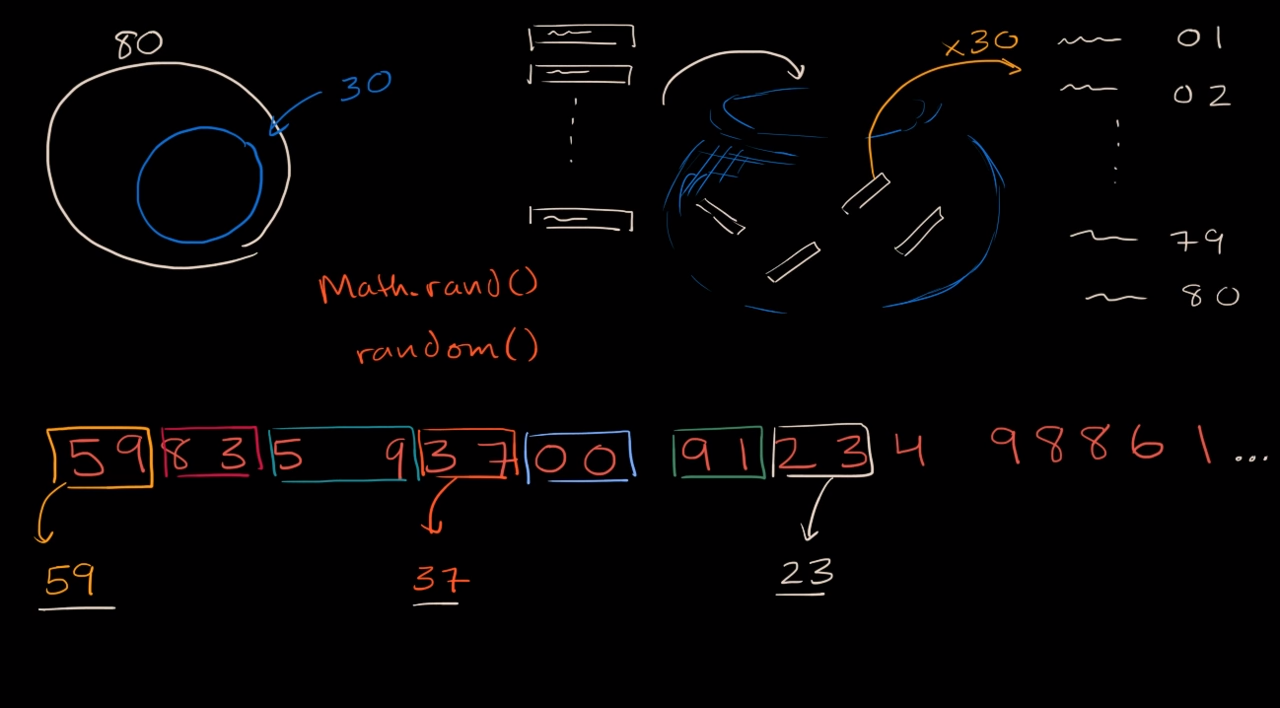 80
30
x30
01
02
79
80
Math.rand()
random()
59 83 5 9 37 00 91 23 4 98861...
59 37 23